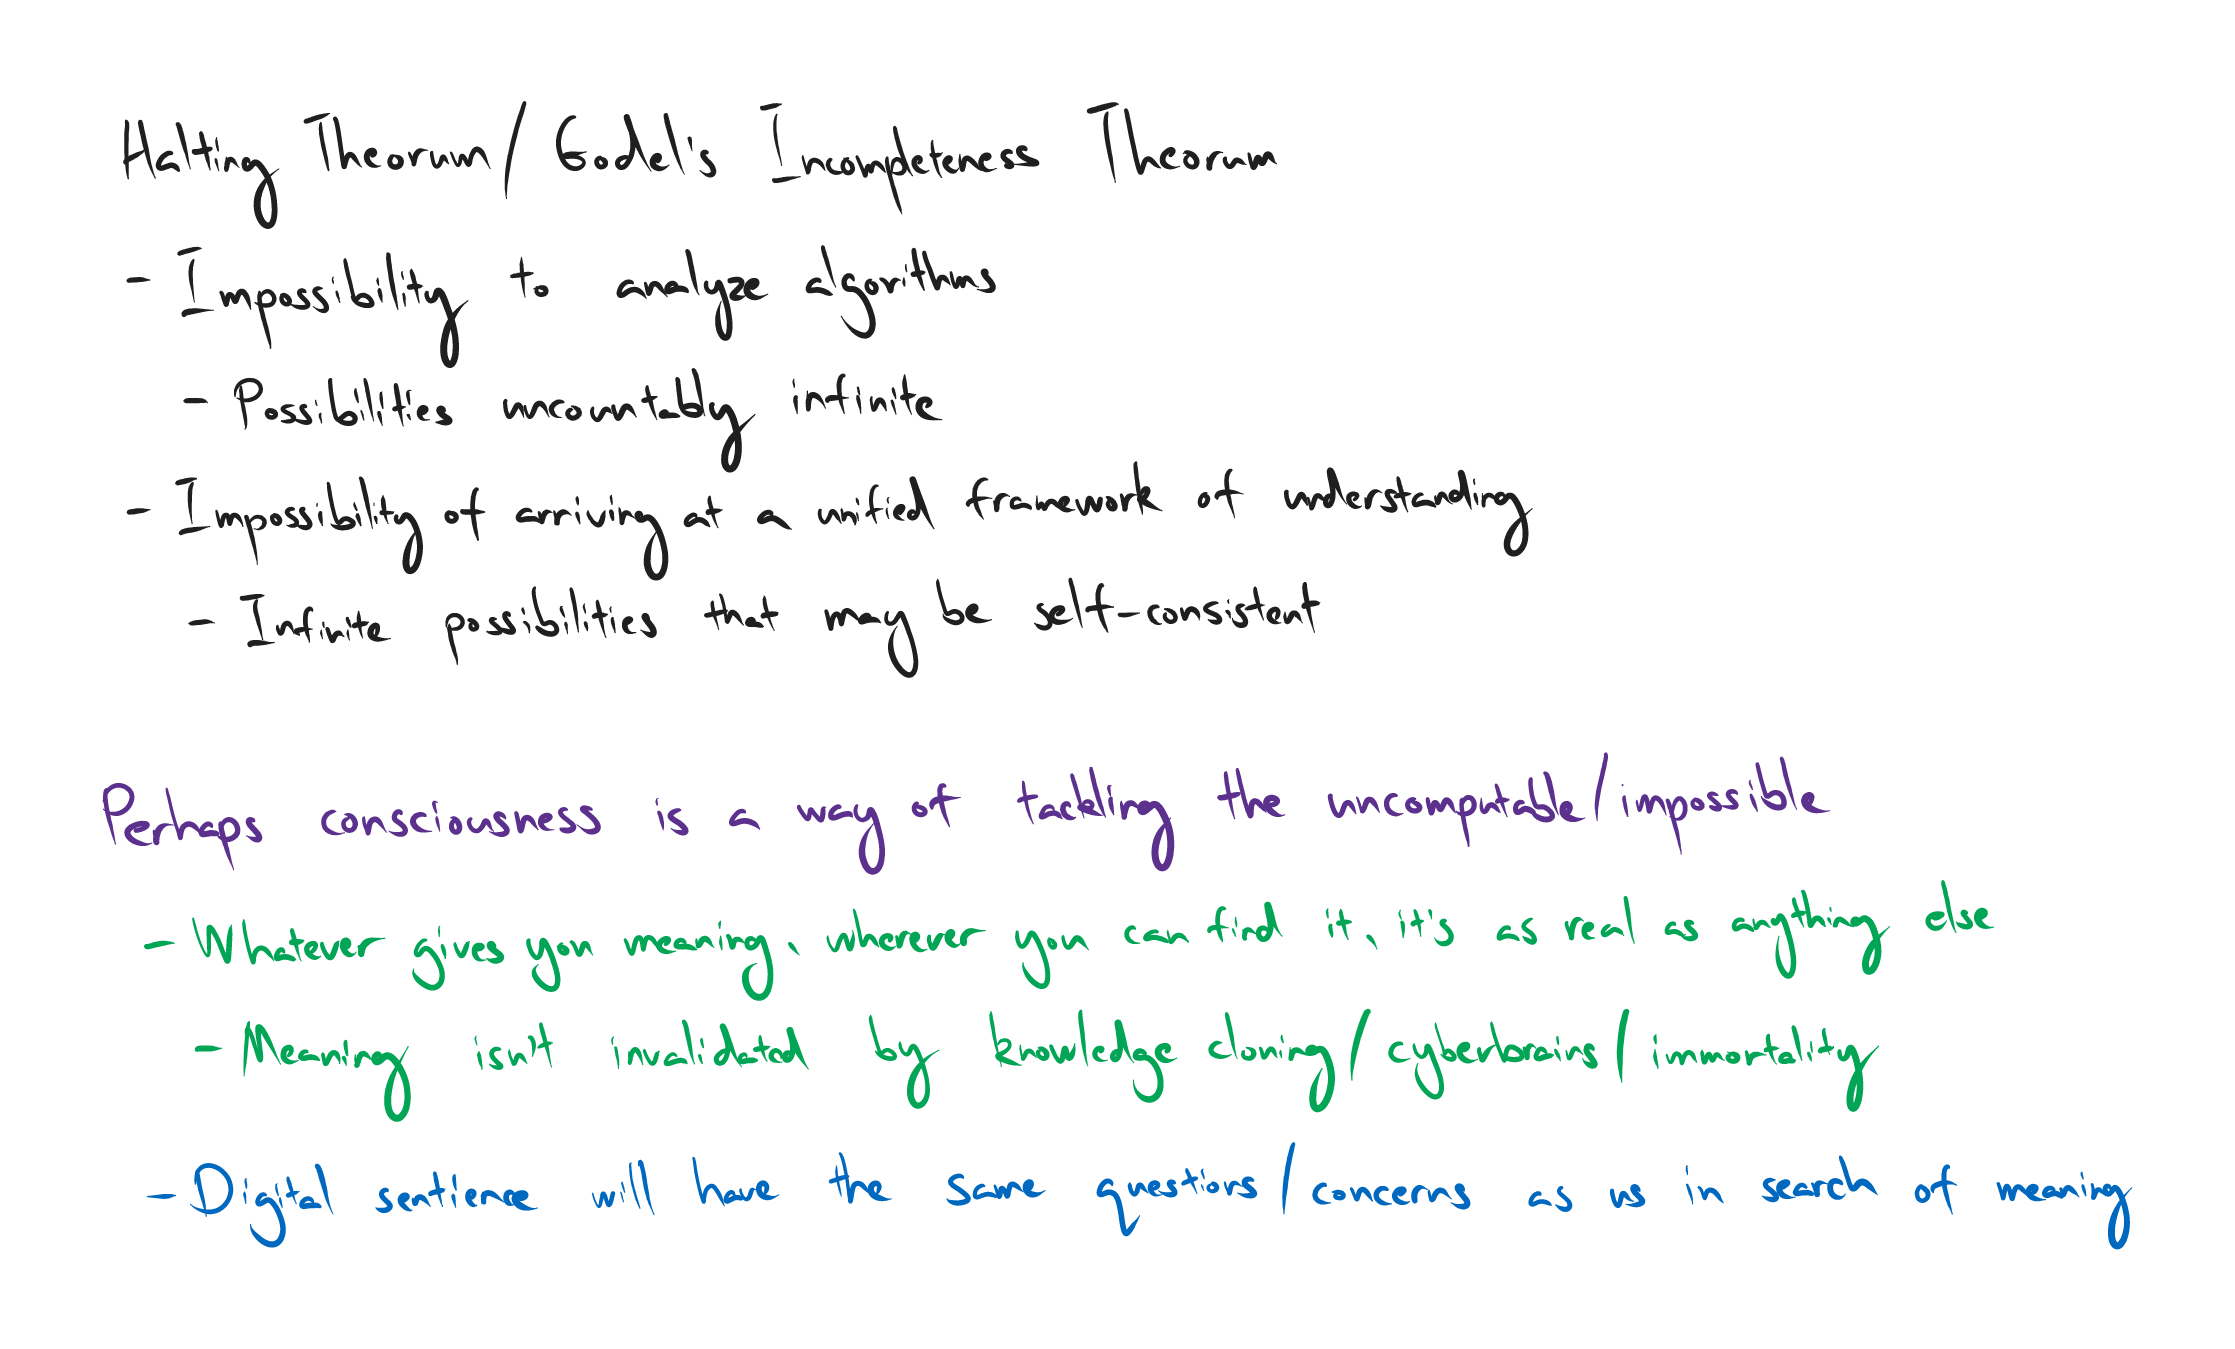 Halting Theorum/Godel's Incompleteness Theorum
- Impossibility to analyze algorithms
- Possibilities uncountably infinite
- Impossibility of arriving at a unified framework of understanding
- Infinite possibilities that may be self-consistent
Perhaps consciousness is a way of tackling the uncomputable/impossible
- Whatever gives you meaning, wherever you can find it, it's as real as anything else
- Meaning isn't invalidated by knowledge cloning/cyberbrains/immortality
- Digital sentience will have the same questions/concerns as us in search of meaning